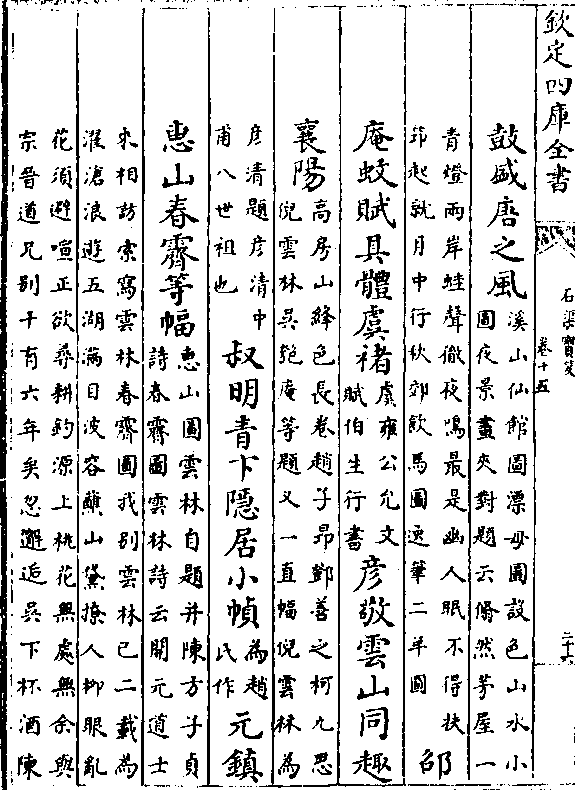 欽定四庫全書
石渠寶笈
卷十五
二十六
鼓盛唐之風
溪山仙館圖漂母圖設色山水小
圖夜景畫夾對題云翛然茅屋一
青燈兩岸蛙聲徹夜鳴最是幽人眠不得扶
筇起就月中行秋郊飲馬圖逸筆二羊圖
邵
庵蚊賦具體虞褚
虞雍公允文
賦伯生行書
彥敬雲山同趣
襄陽
高房山絳色長卷趙子昂鄧善之柯九思
倪雲林吳匏庵等題又一直幅倪雲林為
彦清題彦清中
甫八世祖也
叔明青卞隱居小幀
為趙
氏作
元鎮
惠山春霽等幅
惠山圖雲林自題并陳方子貞
詩春霽圖雲林詩云開元道士
來相訪索寫雲林春霽圖我別雲林已二載為
濯滄浪遊五湖滿目波容蘸山黛撩人柳眼亂
花須避喧正欲尋耕釣源上桃花無處無余與
宗晉道兄別十有六年矣忽邂逅吳下杯酒陳